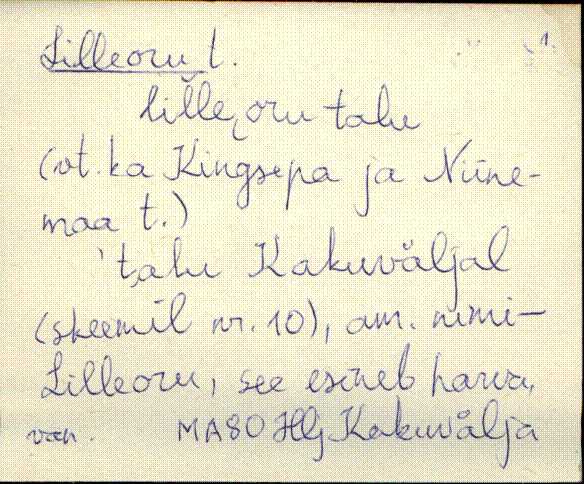 Lilleoru t. 1.
lille̮oru talu
(vt. ka Kingsepa ja Niine-
maa t.)
talu Kakuväljal
(skeemil nr. 10), am. nimi-
Lilleoru, see esineb harva,
van. MA80 Hlj Kakuvälja